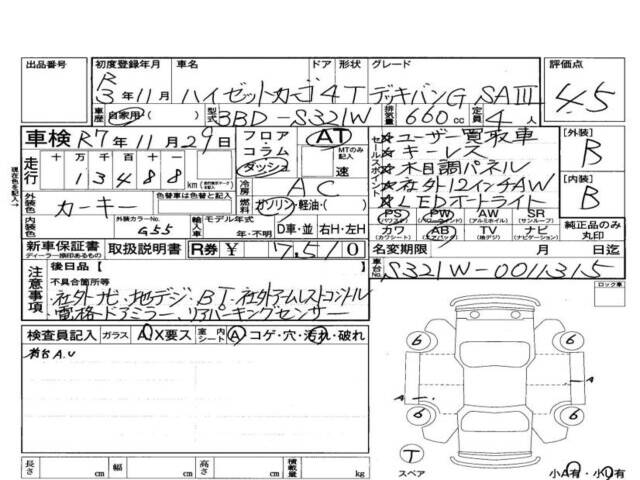 出品番号 初度登録年月 車名 ドア 形状 グレード 評価点
R3年11月 ハイゼットカーゴ 4 T デッキバンG SAⅢ 4.5
車歴 自家用( ) 型式 3BD-S321W 排気量 660cc 定員 4人
車検 R7年11月29日 フロア コラム ダッシュ AT MTのみ記入 速
セールスポイント
★ユーザー買取車
★キーレス
★木目調パネル
★社外12インチAW
★LEDオートライト
[外装] B
[内装] B
現在色を記入→
走行 十 万 千 百 十 一
13488 km
冷房 AC
外装色 カーキー 色替車は色替前を記入
燃料 ガソリン・軽油・( )
内装色 外装カラーNo. G55 輸入車 モデル年式 年・不明 D車・並 右H・左H
PS (パワステ) PW (パワーウィンド) AW (アルミホイル) SR (サンルーフ)
カワ (カワシート) AB (エアバッグ) TV (地デジ) ナビ (ナビゲーション)
純正品のみ丸印
新車保証書 ディーラー捺印あるもの 取扱説明書 R券 ¥ 7,510
名変期限 月 日迄
車台No. S321W-0011315
ロック車
注意事項
後日品【 】
不具合箇所等
・社外ナビ・地デジ・BT・社外アームレストコントロル
・電格ドアミラー・リアパーキングセンサー
検査員記入 ガラス A X要ス 室内 シート A コゲ・穴・汚れ・破れ
荷台A.U
6 6
A A
6 6
T
スペア
小A有・小U有
長さ cm 幅 cm 高さ cm 積載量 kg